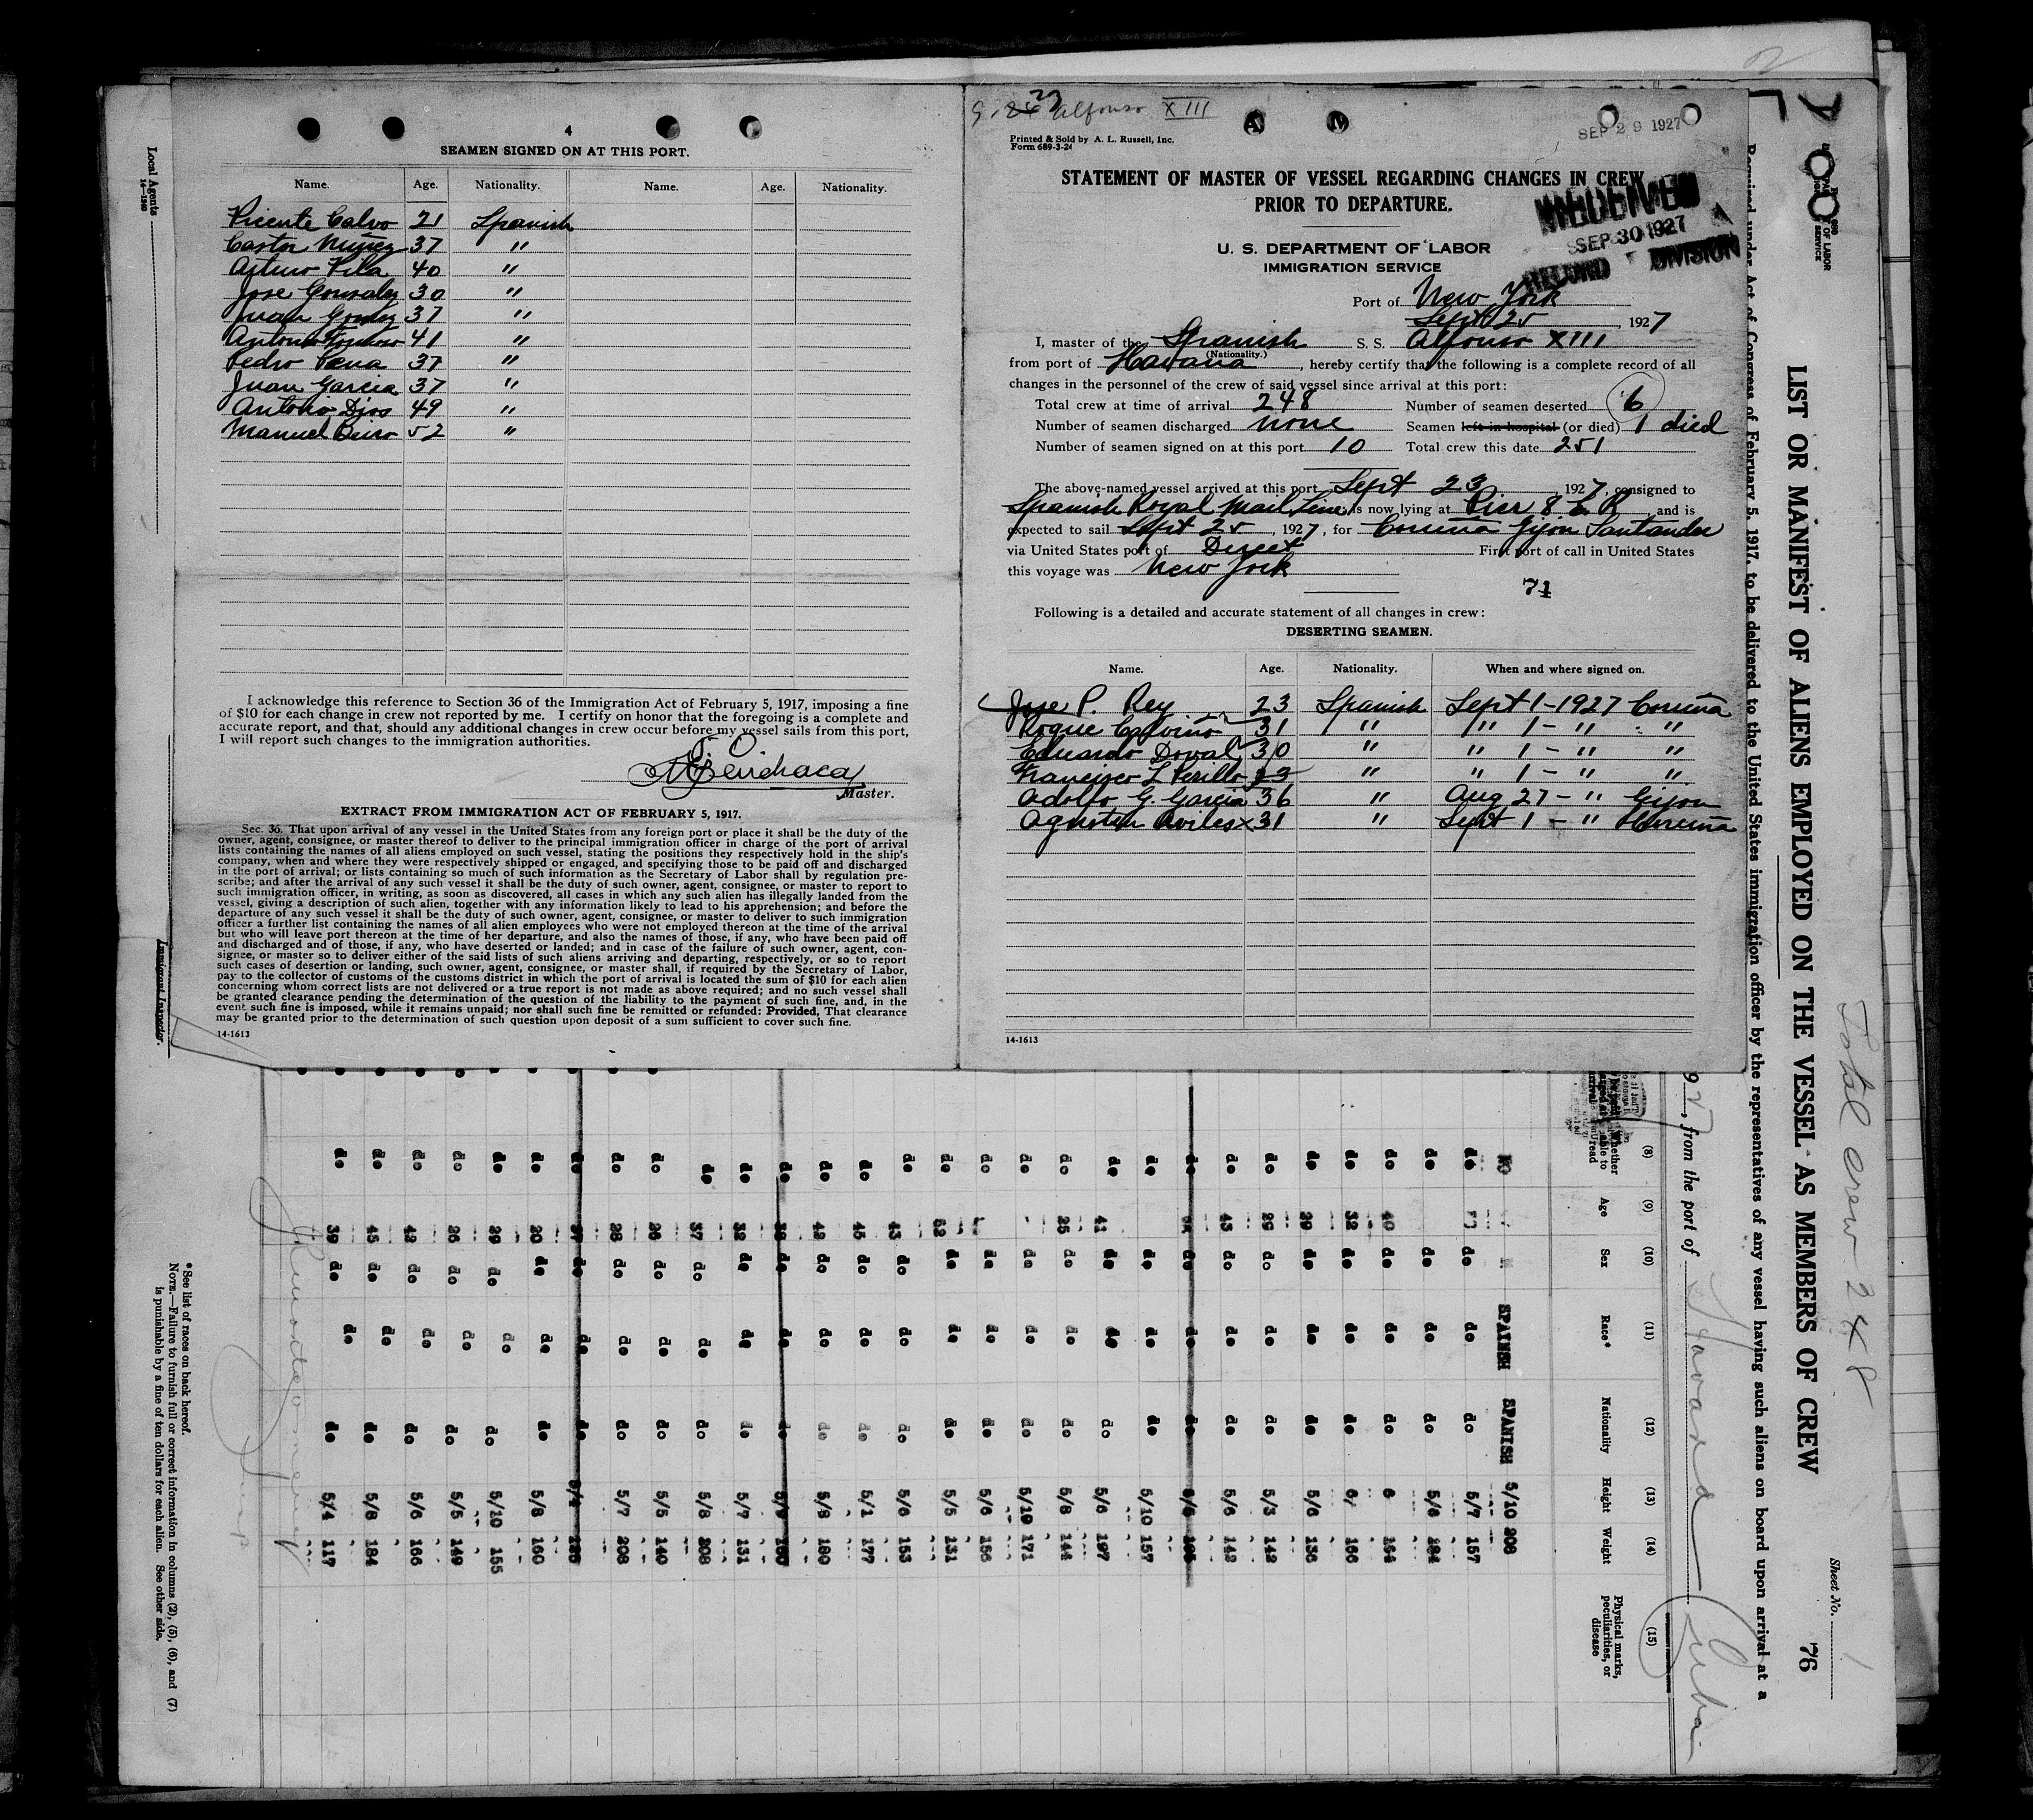 4
SEAMEN SIGNED ON AT THIS PORT.
Name. Age. Nationality. Name. Age. Nationality.
Vicente Calvo 21 Spanish
Castor Nuñez 37 "
Arturo Vila 40 "
Jose Gonzalez 30 "
Juan Gomez 37 "
Antonio 41 "
Pedro Pena 37 "
Juan Garcia 37 "
Antonio Dios 49 "
Manuel 52 "
I acknowledge this reference to Section 36 of the Immigration Act of February 5, 1917, imposing a fine
of $10 for each change in crew not reported by me. I certify on honor that the foregoing is a complete and
accurate report, and that, should any additional changes in crew occur before my vessel sails from this port,
I will report such changes to the immigration authorities.
Master.
EXTRACT FROM IMMIGRATION ACT OF FEBRUARY 5, 1917.
Sec. 36. That upon arrival of any vessel in the United States from any foreign port or place it shall be the duty of the
owner, agent, consignee, or master thereof to deliver to the principal immigration officer in charge of the port of arrival
lists containing the names of all aliens employed on such vessel, stating the positions they respectively hold in the ship's
company, when and where they were respectively shipped or engaged, and specifying those to be paid off and discharged
in the port of arrival; or lists containing so much of such information as the Secretary of Labor shall by regulation pre-
scribe; and after the arrival of any such vessel it shall be the duty of such owner, agent, consignee, or master to report to
such immigration officer, in writing, as soon as discovered, all cases in which any such alien has illegally landed from the
vessel, giving a description of such alien, together with any information likely to lead to his apprehension; and before the
departure of any such vessel it shall be the duty of such owner, agent, consignee, or master to deliver to such immigration
officer a further list containing the names of all alien employees who were not employed thereon at the time of the arrival
but who will leave port thereon at the time of her departure, and also the names of those, if any, who have been paid off
and discharged and of those, if any, who have deserted or landed; and in case of the failure of such owner, agent, con-
signee, or master so to deliver either of the said lists of such aliens arriving and departing, respectively, or so to report
such cases of desertion or landing, such owner, agent, consignee, or master shall, if required by the Secretary of Labor,
pay to the collector of customs of the customs district in which the port of arrival is located the sum of $10 for each alien
concerning whom correct lists are not delivered or a true report is not made as above required; and no such vessel shall
be granted clearance pending the determination of the question of the liability to the payment of such fine, and, in the
event such fine is imposed, while it remains unpaid; nor shall such fine be remitted or refunded: Provided, That clearance
may be granted prior to the determination of such question upon deposit of a sum sufficient to cover such fine.
14-1613
Alfonso XIII
A M
SEP 29 1927
Printed & Sold by A. L. Russell, Inc.
Form 689-3-24
STATEMENT OF MASTER OF VESSEL REGARDING CHANGES IN CREW
PRIOR TO DEPARTURE.
RECEIVED
SEP 30 1927
RECORD DIVISION
U. S. DEPARTMENT OF LABOR
IMMIGRATION SERVICE
Port of New York
Sept 25, 1927
I, master of the Spanish S. S. Alfonso XIII
(Nationality.)
from port of Havana, hereby certify that the following is a complete record of all
changes in the personnel of the crew of said vessel since arrival at this port:
Total crew at time of arrival 248 Number of seamen deserted 6
Number of seamen discharged none Seamen left in hospital (or died) 1 died
Number of seamen signed on at this port 10 Total crew this date 251
The above-named vessel arrived at this port Sept 23, 1927, consigned to
Spanish Royal Mail Line, is now lying at Pier 8 E R and is
expected to sail Sept 25, 1927, for Coruña Gijon Santander
via United States port of Direct First port of call in United States
this voyage was New York
71
Following is a detailed and accurate statement of all changes in crew:
DESERTING SEAMEN.
Name. Age. Nationality. When and where signed on.
Jose P. Rey 23 Spanish Sept 1-1927 Coruña
Roque Calviño 31 " " 1 - " "
Eduardo Doval 30 " " 1 - " "
Francisco L 23 " " 1 - " "
Adolfo G. Garcia 36 " Aug 27 - " Gijon
Agustin Aviles x 31 " Sept 1 - " Coruña
14-1613
Local Agents
14-1240
Immigrant Inspector.
LIST OR MANIFEST OF ALIENS EMPLOYED ON THE VESSEL AS MEMBERS OF CREW
Total crew 248
Sheet No. 1
76
Required under Act of Congress of February 5, 1917, to be delivered to the United States immigration officer by the representatives of any vessel having such aliens on board upon arrival at a
, from the port of Havana Cuba
(8) (9) (10) (11) (12) (13) (14) (15)
Age Sex Race* Nationality Height Weight Physical marks, peculiarities, or disease
NO SPAINSH SPANISH 5/10 208
do do do do 5/7 157
do do do do 5/6 184
do 40 do do do 6 164
do 32 do do do 6, 166
do 29 do do do 5/6 136
do 29 do do do 5/3 142
do 43 do do do 5/6 142
do do do do
do do do do 5/10 157
do 41 do do do 5/6 197
do 25 do do do 5/8 144
do do do do 5/10 171
do do do do 5/6 156
do 52 do do do 5/5 131
do 43 do do do 5/6 153
do 45 do do do 5/1 177
do 42 do do do 5/8 180
do do do do
do 32 do do do 5/7 131
do 37 do do do 5/8 208
do 26 do do do 5/5 140
do 28 do do do 5/7 208
do do do do
do 20 do do do 5/8 160
do 29 do do do 5/10 155
do 26 do do do 5/5 149
do 42 do do do 5/6 166
do 45 do do do 5/8 184
do 39 do do do 5/4 117
*See list of races on back hereof.
NOTE.—Failure to furnish full or correct information in columns (2), (5), (6), and (7)
is punishable by a fine of ten dollars for each alien. See other side.